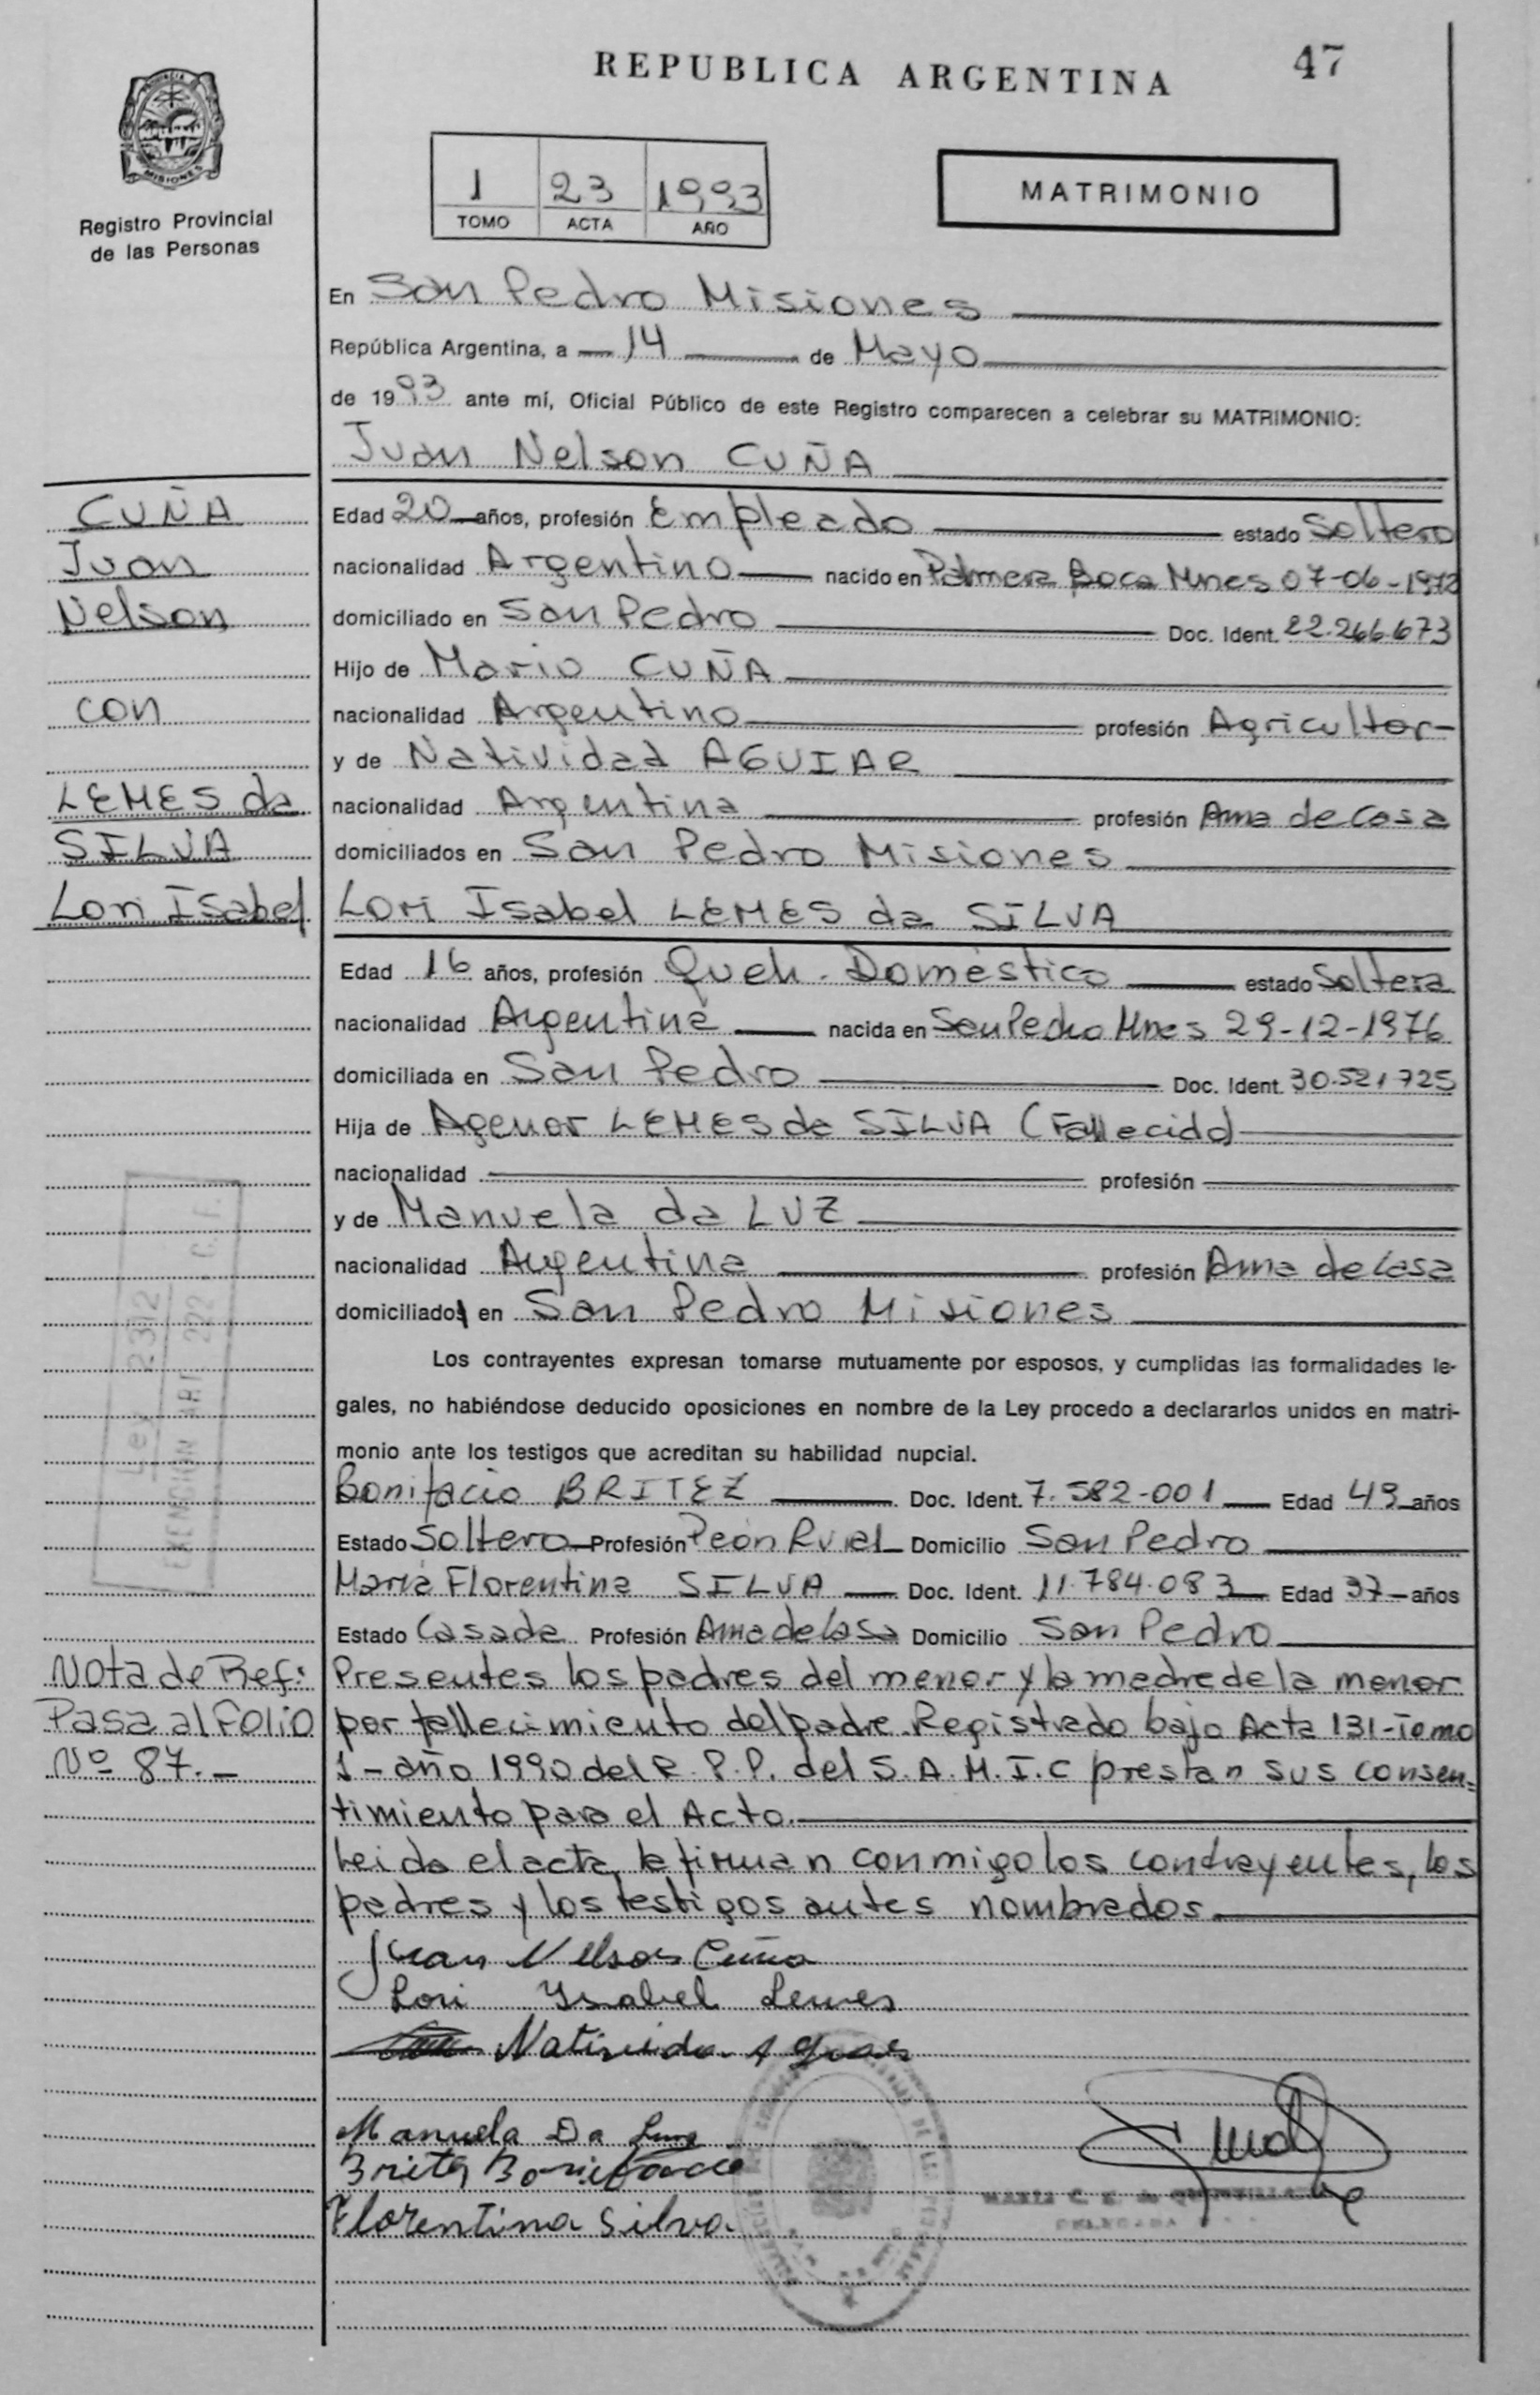 REPUBLICA ARGENTINA
47
MISIONES
Registro Provincial
de las Personas
1 23 1993
TOMO ACTA AÑO
MATRIMONIO
En San Pedro Misiones
República Argentina, a 14 de Mayo
de 1993 ante mí, Oficial Público de este Registro comparecen a celebrar su MATRIMONIO:
Juan Nelson CUÑA
CUÑA
Juan
Nelson
con
LEMES da
SILVA
Lori Isabel
Edad 20 años, profesión Empleado estado Soltero
nacionalidad Argentino nacido en Palmera Boca Mnes 07-06-1972
domiciliado en San Pedro Doc. Ident. 22.266.673
Hijo de Mario CUÑA
nacionalidad Argentino profesión Agricultor
y de Natividad AGUIAR
nacionalidad Argentina profesión Ama de Casa
domiciliados en San Pedro Misiones
Lori Isabel LEMES da SILVA
Edad 16 años, profesión Queh. Doméstico estado Soltera
nacionalidad Argentina nacida en San Pedro Mnes 29-12-1976
domiciliada en San Pedro Doc. Ident. 30.521.725
Hija de Agenor LEMES da SILVA (Fallecido)
nacionalidad profesión
y de Manuela da LUZ
nacionalidad Argentina profesión Ama de Casa
domiciliados en San Pedro Misiones
Los contrayentes expresan tomarse mutuamente por esposos, y cumplidas las formalidades le-
gales, no habiéndose deducido oposiciones en nombre de la Ley procedo a declararlos unidos en matri-
monio ante los testigos que acreditan su habilidad nupcial.
Bonifacio BRITEZ Doc. Ident. 7.582-001 Edad 49 años
Estado Soltero Profesión Peón Rural Domicilio San Pedro
María Florentina SILVA Doc. Ident. 11.784.083 Edad 37 años
Estado Casada Profesión Ama de Casa Domicilio San Pedro
Nota de Ref:
Pasa al Folio
Nº 87.-
Presentes los padres del menor y la madre de la menor
por fallecimiento del padre Registrado bajo Acta 131-Tomo
1-año 1990 del R.P.P. del S.A.M.I.C prestan sus consen=
timiento para el Acto.
Leida el acta, la firman conmigo los contrayentes, los
padres y los testigos antes nombrados.
Juan Nelson Cuña
Lori Ysabel Lemes
Natividad Aguiar
Manuela Da Luz
Britez Bonifacio
Florentina Silva
Ley 2312
EXENCION ART. 222
MARIA C.
DELEGADA